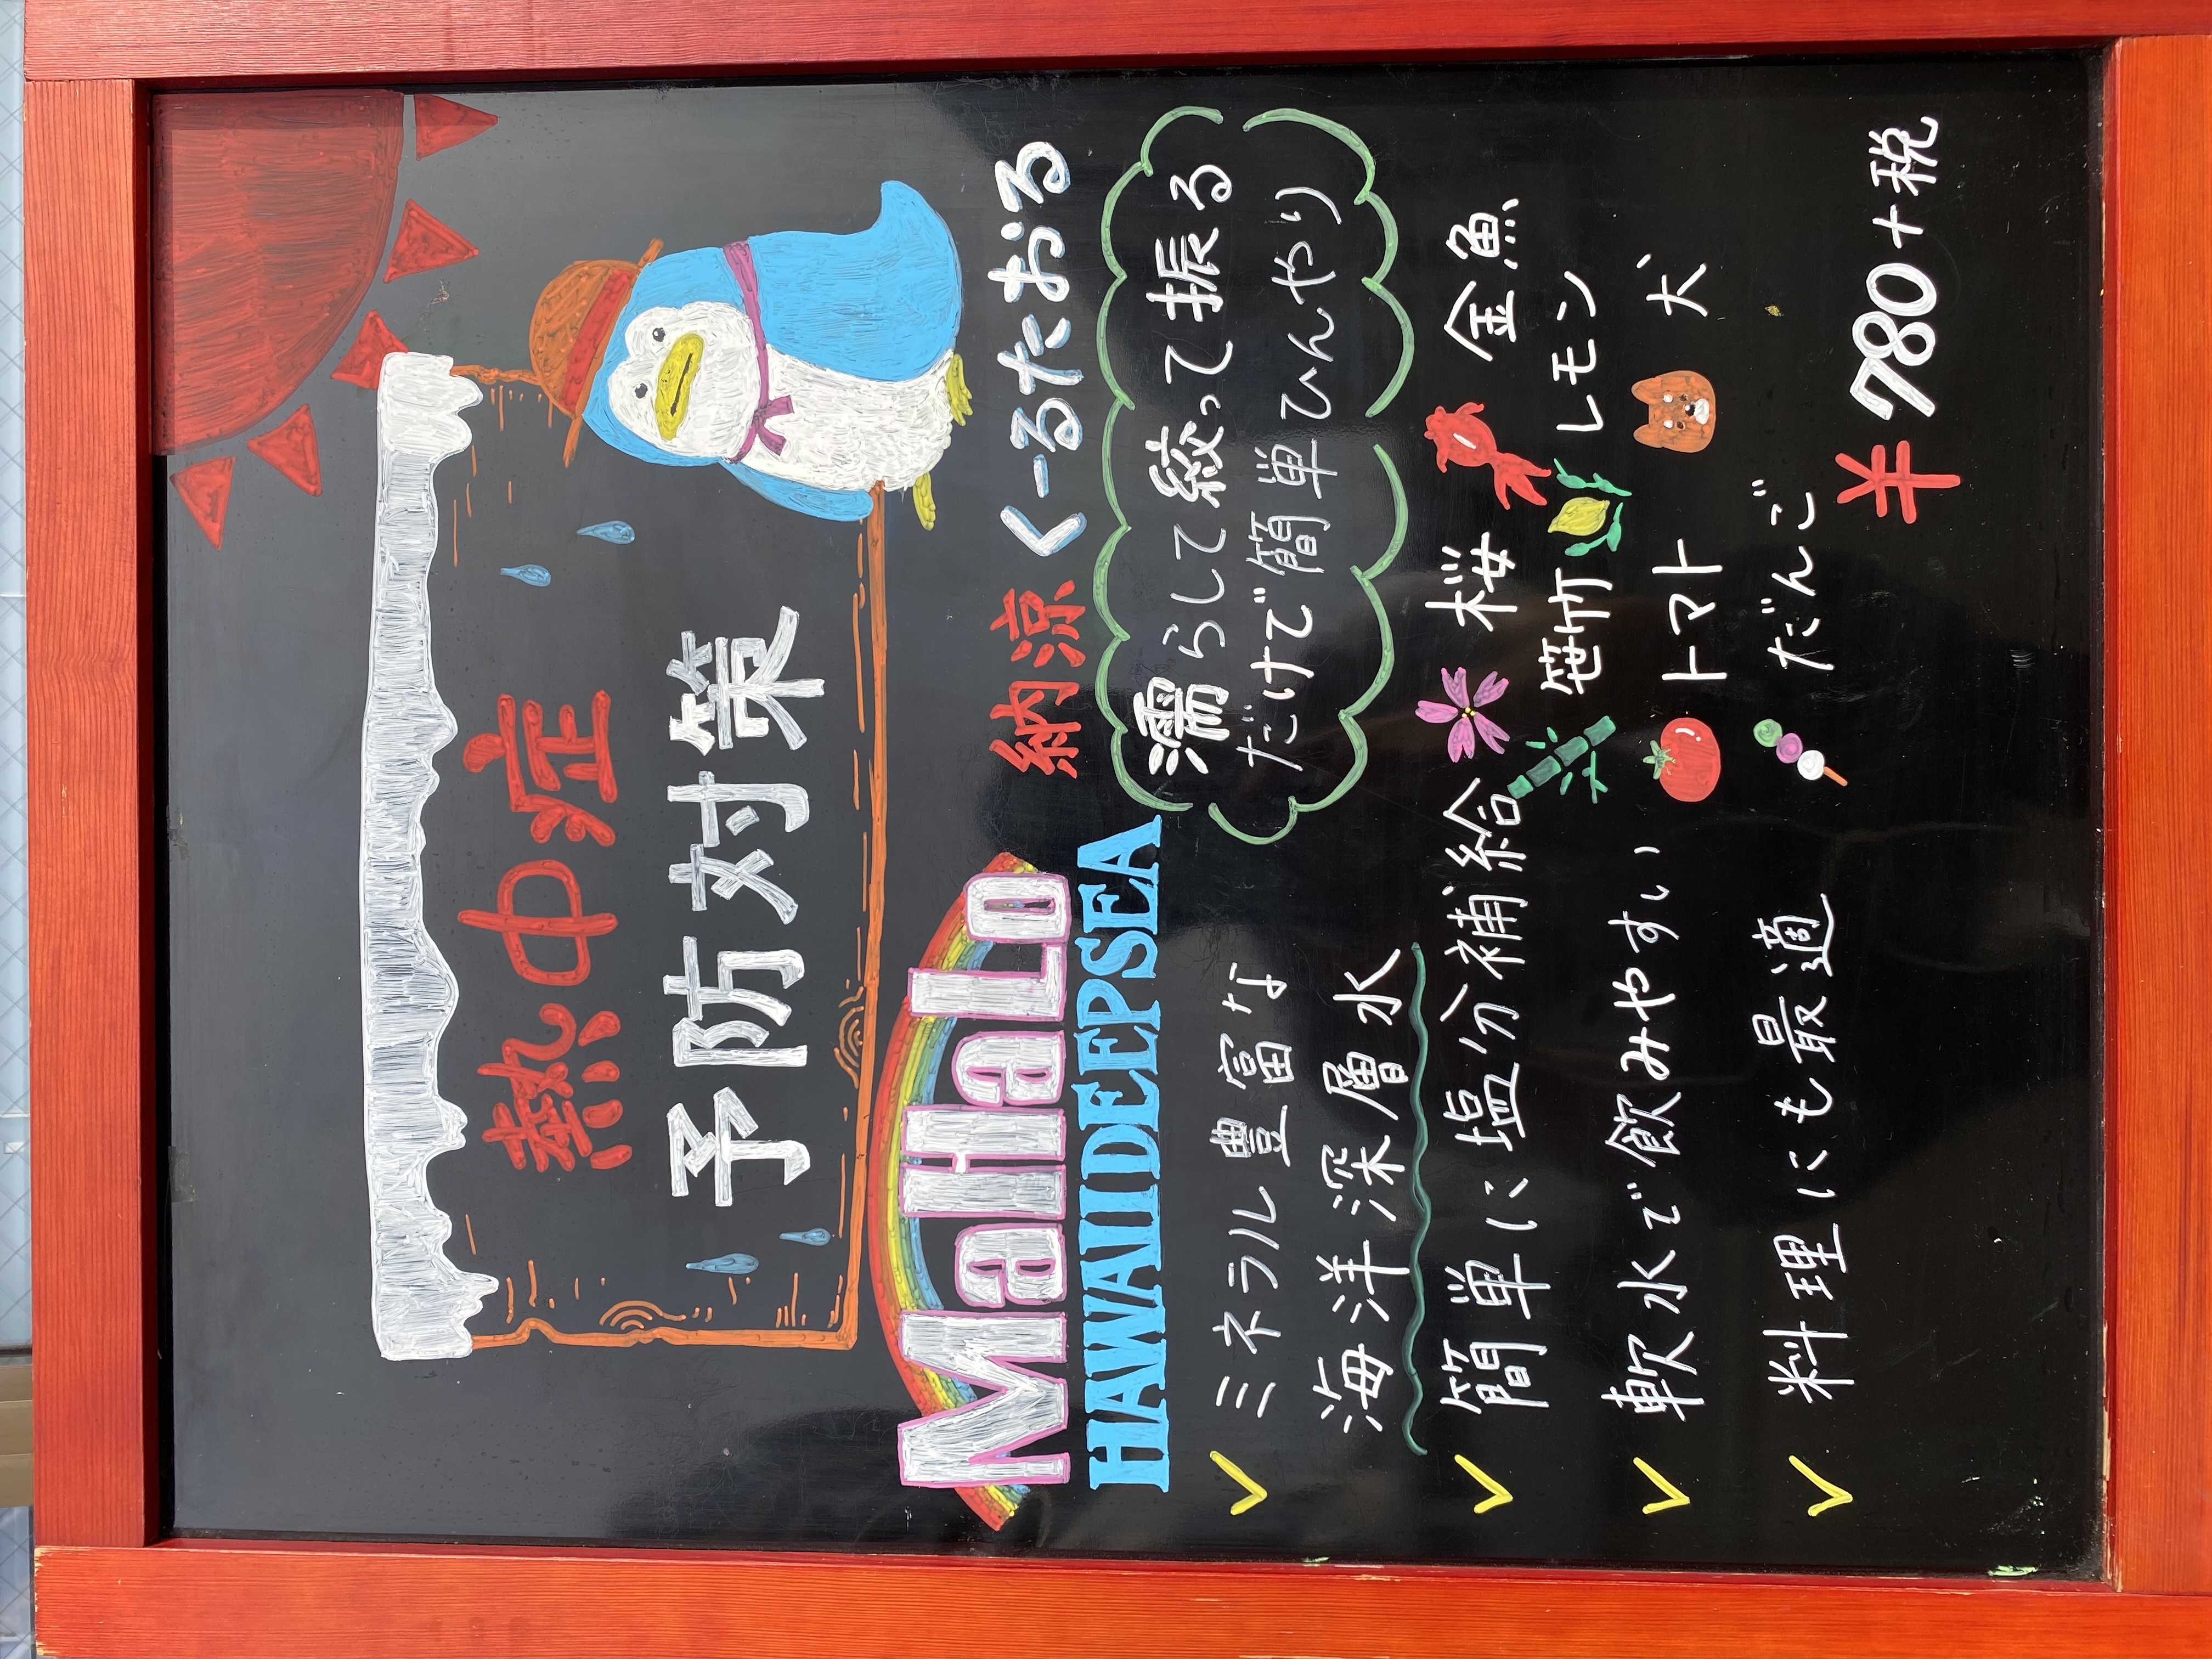 熱中症
予防対策
MaHaLo
HAWAIIDEEPSEA
ミネラル豊富な
海洋深層水
簡単に塩分補給
軟水で飲みやすい
料理にも最適
納涼くーるたおる
濡らして絞って振る
だけで簡単ひんやり
桜 金魚
笹竹 レモン
トマト 犬
だんご
¥780+税